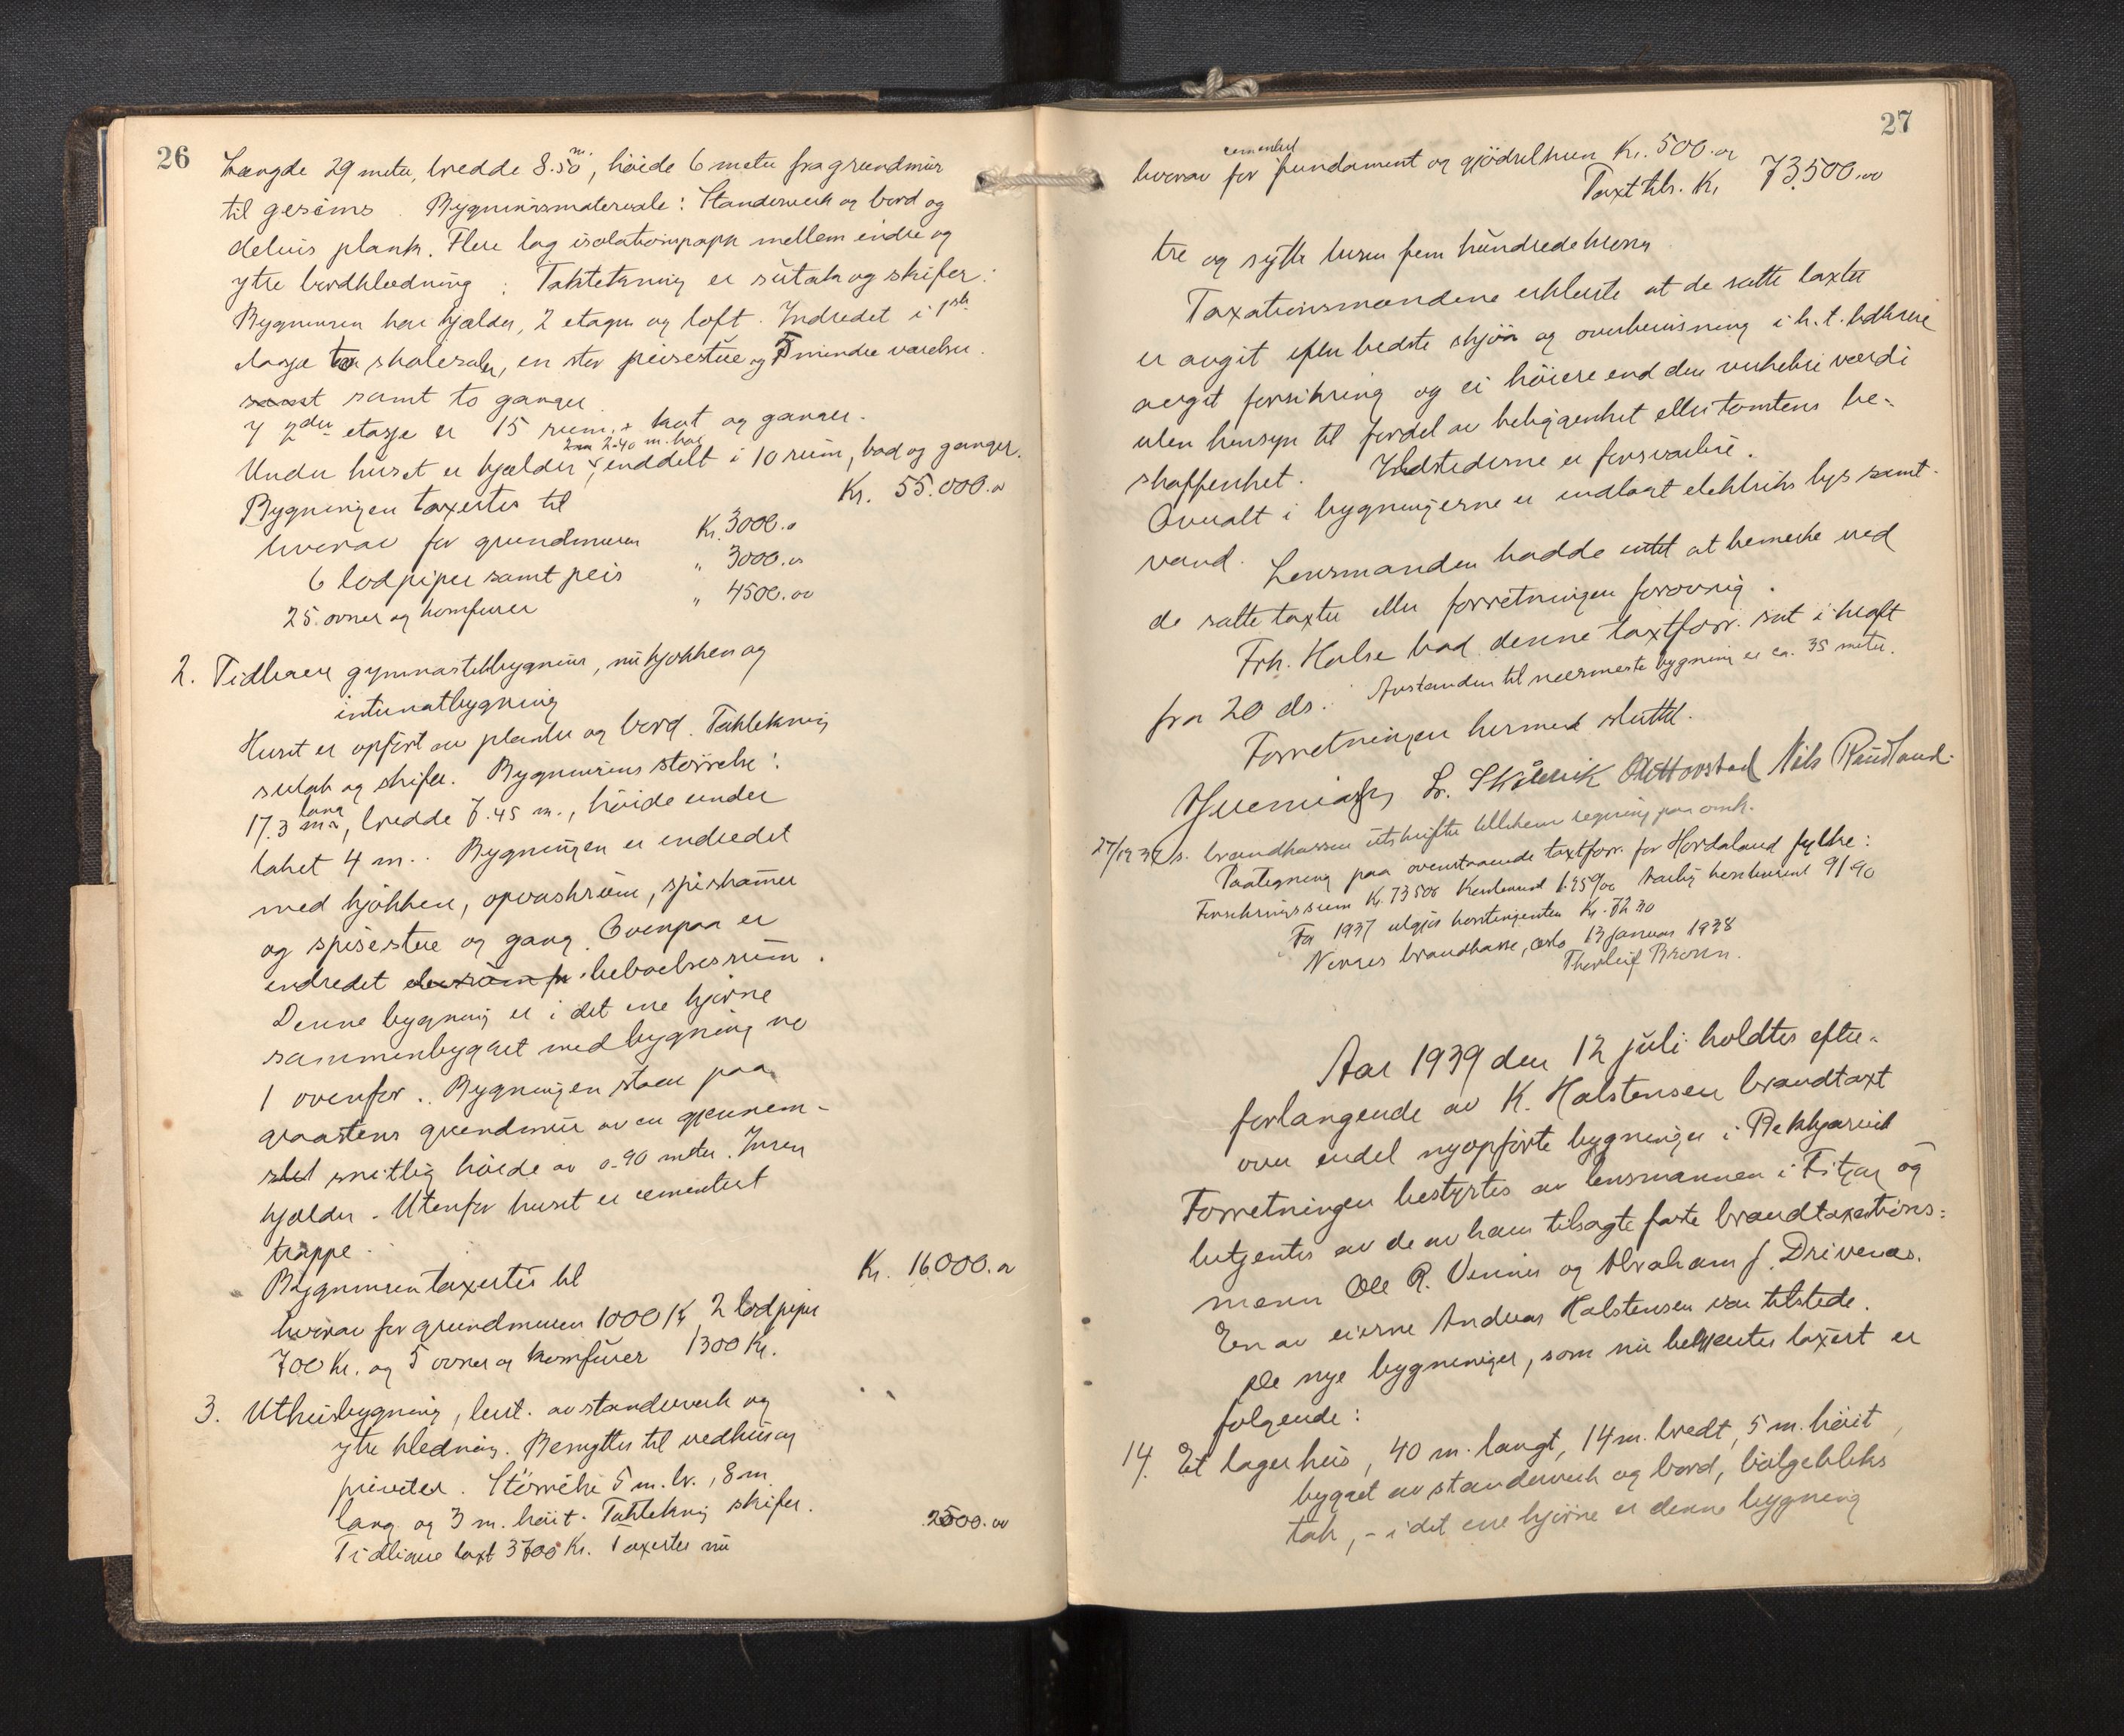 26
Længde 29 meter, bredde 8.50 m., höide 6 meter fra grundmur
til gesims. Bygningsmateriale: Standerverk og bord og
delvis plank. Flere lag isolationspapp mellem indre og
ytre bordklædning. Taktekning er sutak og skifer.
Bygningen har kjælder, 2 etager og loft. Indredet i 1ste
etasje to skolesaler, en stor peisestue og 5 mindre værelser
samt to ganger
I 2den etasje er 15 rum, + kot og ganger.
Under huset er kjælder 2.40 m. høi, inddelt i 10 rum, bad og ganger.
Bygningen taxertes til Kr. 55.000.00
hvorav for grundmuren Kr. 3000.00
6 lodpiper samt peis " 3000.00
25 ovner og komfurer " 4500.00
2. Tidligere gymnastikbygning, nu kjøkken og
internatbygning
Huset er opført av planker og bord. Taktekning
sutak og skifer. Bygningens størrelse:
17.3 m lang, bredde 7.45 m., höide under
taket 4 m. Bygningen er indredet
med kjøkken, opvaskrum, spiskamer
og spisestue og gang. Ovenpaa er
indredet beboelsesrum.
Denne bygning er i det ene hjørne
sammenbygget med bygning no
1 ovenfor. Bygningen staar paa
graastens grundmur av en gjennem-
snitlig höide av 0.90 meter. Ingen
kjælder. Utenfor huset er cementert
trappe.
Bygningen taxertes til Kr. 16000.00
hvorav for grundmuren 1000 Kr 2 lodpiper
700 Kr. og 5 ovner og komfurer 1300 Kr.
3. Uthusbygning, best. av standerverk og
ytre kledning. Benyttes til vedhus og
priveter. Störrelse 5 m. br., 8 m
lang og 3 m. höit. Taktekning skifer.
Tidligere taxt 3700 Kr. Taxertes nu 2500.00
27
hvorav for cementert fundament og gjödselhus Kr. 500.00
Taxt tils. Kr. 73.500.00
tre og sytti tusen fem hundrede kroner
Taxationsmændene erklærte at de satte taxter
er avgit efter bedste skjön og overbevisning i h. t. bekræf
avgit forsikring og ei höiere end den virkelige værdi
uten hensyn til fordel av beliggenhet eller tomtens be-
skaffenhet. Ildstederne er forsvarlige.
Overalt i bygningerne er indlagt elektrisk lys samt
vand. Lensmanden hadde intet at bemerke ved
de satte taxter eller forretningen forøvrig.
Frk. Halse bad denne taxtforr. sat i kraft
fra 20 ds. Avstanden til nærmeste bygning er ca. 35 meter.
Forretningen hermed sluttet.
L. Skålevik Nils Rimsland
brandkassen utskrifter tillikem regning paa omk.
Paategning paa ovenstaaende taxtforr. for Hordaland fylke:
Forsikringssum Kr. 73500 1.25‰ Aarlig kontingent 91.90
For 1937 utgjör kontingenten Kr. 72 30
Norges brandkasse, Oslo 13 januar 1938
Thorleif Bronn.
Aar 1939 den 12 juli holdtes efter
forlangende av K. Halstensen brandtaxt
over endel nyopförte bygninger i Bekkjarvik
Forretningen bestyrtes av lensmannen i Fitjar og
betjentes av de av ham tilsagte faste brandtaxations-
menn Ole R. Vennes og Abraham J. Drivenes.
En av eierne Andreas Halstensen var tilstede.
De nye bygninger, som nu bekjentes taxert er
følgende:
14. Et lagerhus, 40 m. langt, 14 m. bredt, 5 m. höit,
bygget av standerverk og bord, bölgebliks
tak, - i det ene hjörne er denne bygning